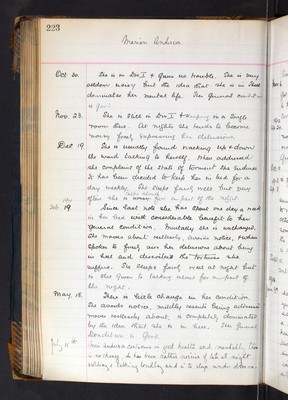 223
Marion Anderson
Oct 30. She is in Div. I & gives no trouble. She is very
seldom noisy but the idea that she is in Hell
dominates her mental life. Her general condition
is good.
Nov. 23. She is still in Div. I & sleeping in a single
room there. At nights she tends to become
noisy, freely expressing her delusions.
Dec 19 She is usually found walking up & down
the ward talking to herself. When addressed
she complains of the state of torment she endures.
It has been decided to keep her in bed for a
day weekly. She sleeps fairly well but very
often she is noisy for a part of the night.
Feb 19 Since last note she has spent one day a week
in her bed with considerable benefit to her
general condition. Mentally she is unchanged.
She moves about restlessly, avoids notice, when
spoken to freely airs her delusions about being
in hell and describes the tortures she
suffers. She sleeps fairly well at night but
is often given to talking aloud for a part of
the night.
May. 18. There is little change in her condition.
She avoids notice, mildly resents being addressed
moves restlessly about, is completely dominated
by the idea that she is in Hell. Her general
condition is good.
July 11th Miss Anderson continues in good health and mentally there
is no change. She has been rather noisier of late at night
talking loudly and is to sleep under